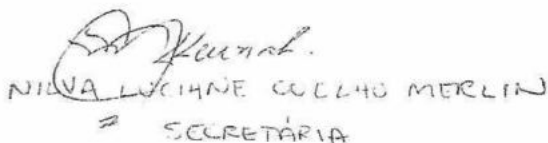 NILVA LUCIANE COELHO MERLIN
= SECRETÁRIA